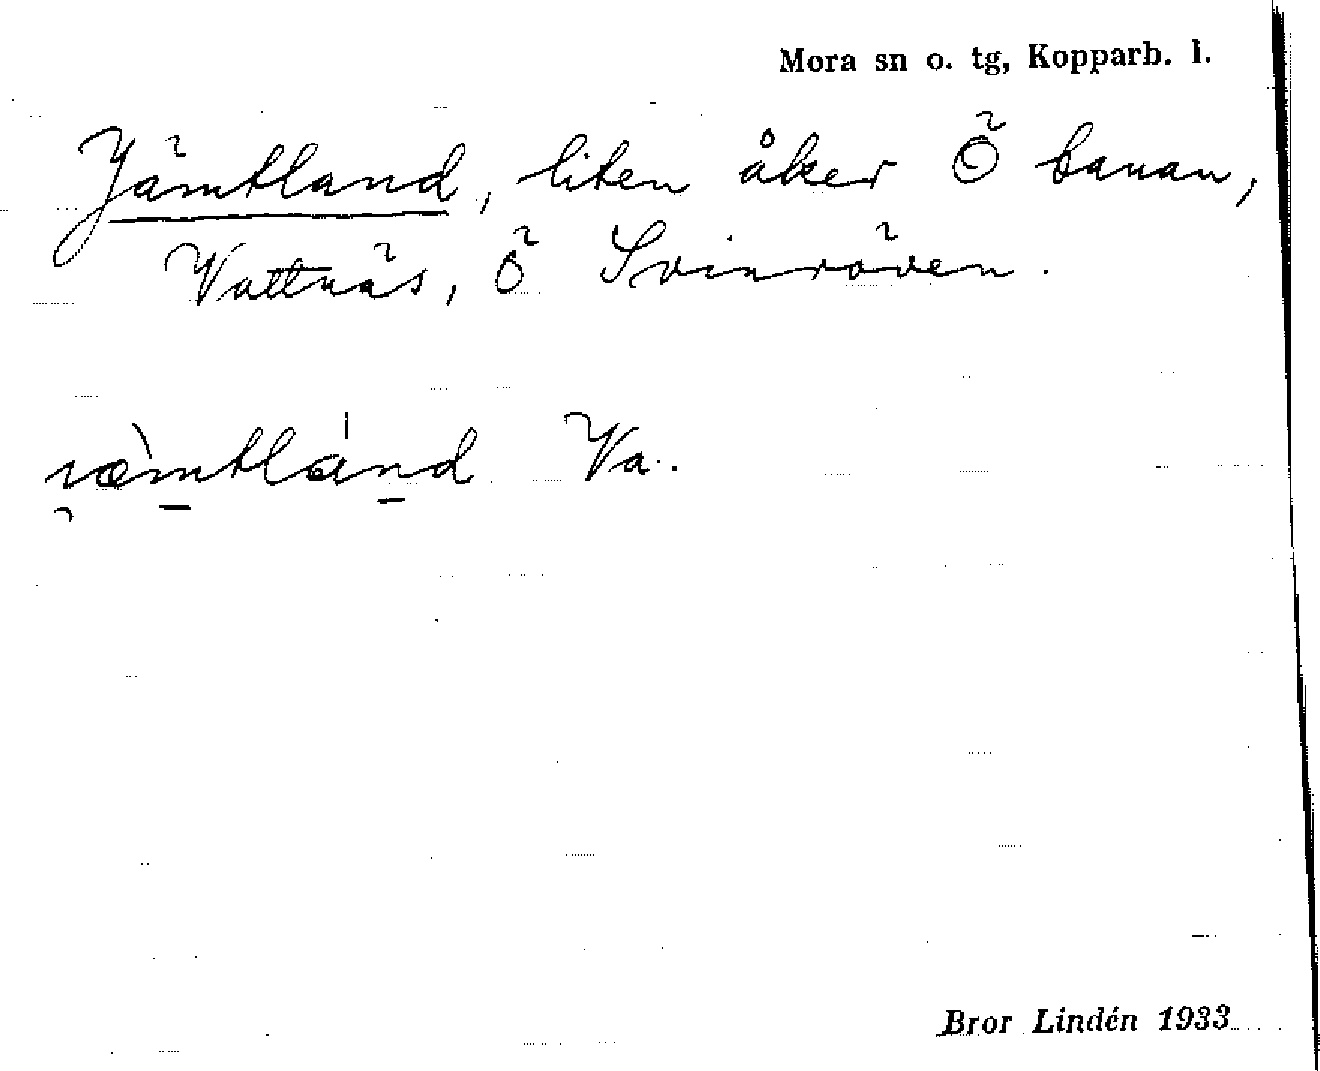 Mora sn o. tg, Kopparb. l.
Jämtland, liten åker Ö banan,
Vattnäs, ö Svinröven.
Va.
Bror Lindén 1933